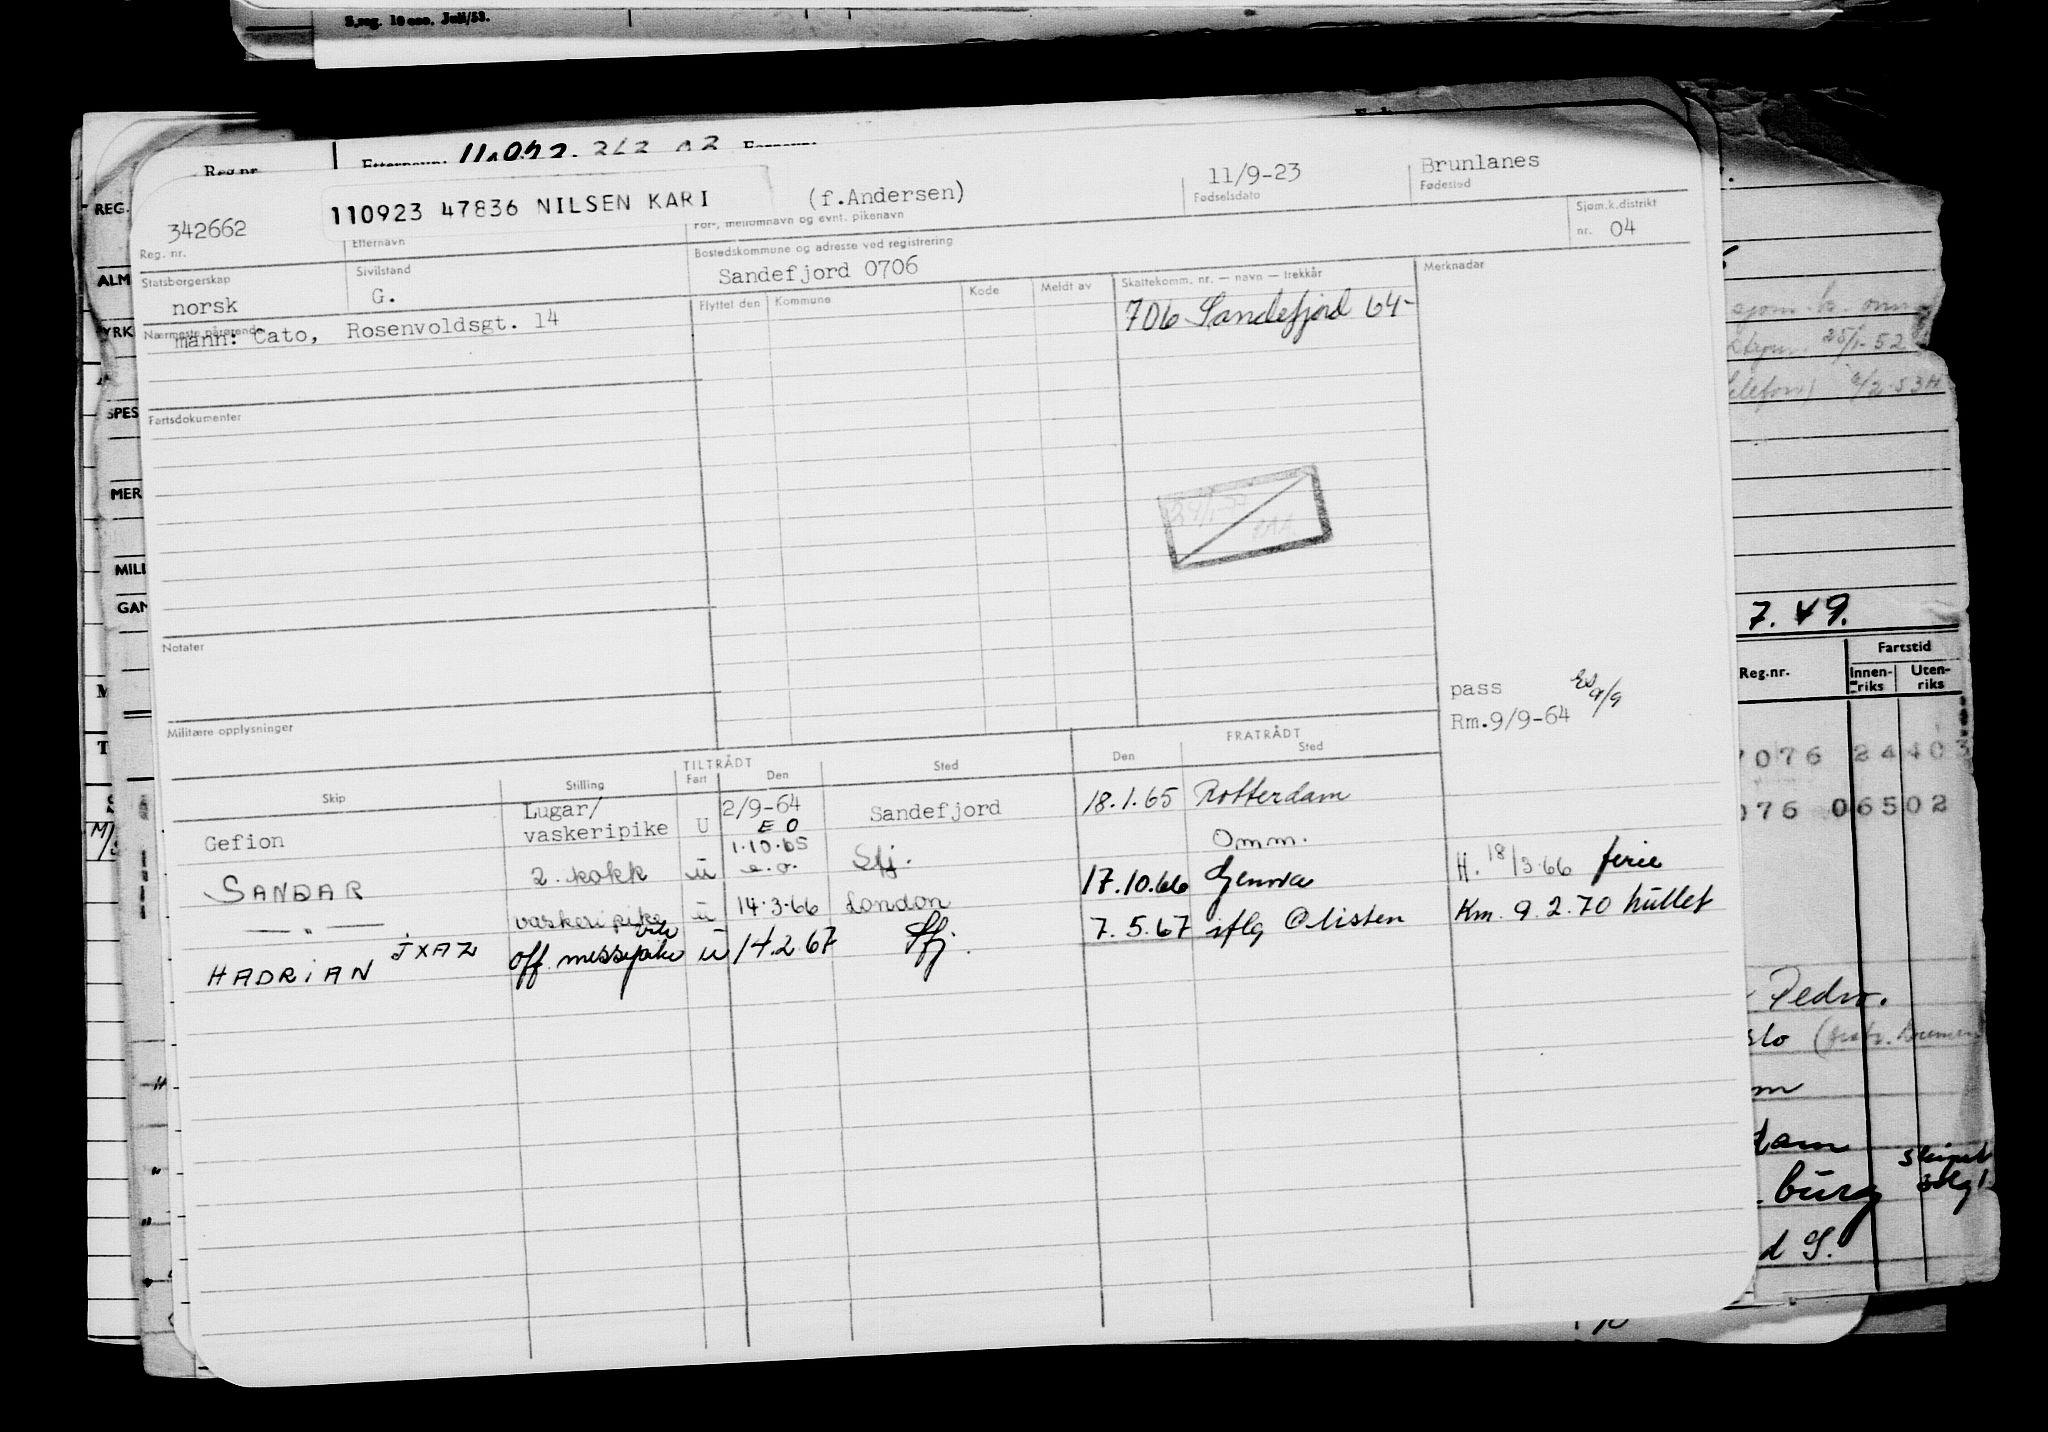 S.reg. 10 000. Juli/53.
Reg.nr. Etternavn: Fornavn:
REG.
110923 47836 NILSEN KARI (f.Andersen) 11/9-23 Brunlanes
Fødselsdato Fødested
342662
Reg. nr. Etternavn For-, mellomnavn og evnt. pikenavn Sjøm.k.distrikt
nr. 04
ALM
Statsborgerskap Sivilstand Bostedskommune og adresse ved registrering
norsk G. Sandefjord 0706
YRK
Nærmeste pårørende Flyttet den Kommune Kode Meldt av Skattekomm. nr. — navn — trekkår Merknader
mann: Cato, Rosenvoldsgt. 14 706 Sandefjord 64-
25/1-52
SPES
Fartsdokumenter
MER
MILI
GAN
7. 49.
Notater
Fartstid
Reg.nr. Innen-riks Uten-riks
pass
Rm.9/9-64 9/9
Militære opplysninger
TILTRÅDT FRATRÅDT
Skip Stilling Fart Den Sted Den Sted
7076 24403
076 06502
Gefion Lugar/ vaskeripike U 2/9-64 EO Sandefjord 18.1.65 Rotterdam
Omm.
SANDAR 2. kokk u 1.10.65 e.o. Sfj. H. 18/3-66 ferie
— " — vaskeripike u 14.3.66 London 17.10.66 Genova Km. 9.2.70 hullet
HADRIAN JXAZ off. messepike u 14.2 67 Sfj. 7.5.67 iflg @listen
Pedro.
slo
dam
burg
d S.